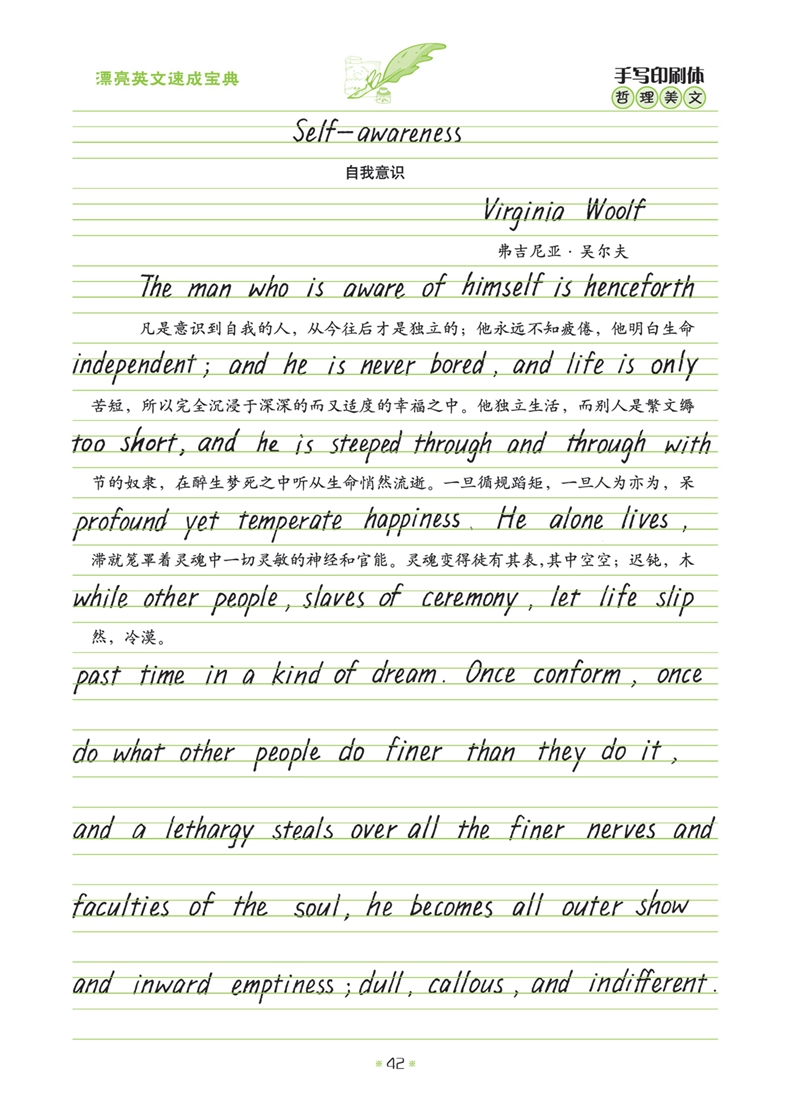 漂亮英文速成宝典
手写印刷体
哲理美文
Self-awareness
自我意识
Virginia Woolf
弗吉尼亚·吴尔夫
The man who is aware of himself is henceforth
凡是意识到自我的人，从今往后才是独立的；他永远不知疲倦，他明白生命
independent; and he is never bored, and life is only
苦短，所以完全沉浸于深深的而又适度的幸福之中。他独立生活，而别人是繁文缛
too short, and he is steeped through and through with
节的奴隶，在醉生梦死之中听从生命悄然流逝。一旦循规蹈矩，一旦人为亦为，呆
profound yet temperate happiness. He alone lives,
滞就笼罩着灵魂中一切灵敏的神经和官能。灵魂变得徒有其表，其中空空；迟钝，木
while other people, slaves of ceremony, let life slip
然，冷漠。
past time in a kind of dream. Once conform, once
do what other people do finer than they do it,
and a lethargy steals over all the finer nerves and
faculties of the soul, he becomes all outer show
and inward emptiness; dull, callous, and indifferent.
42